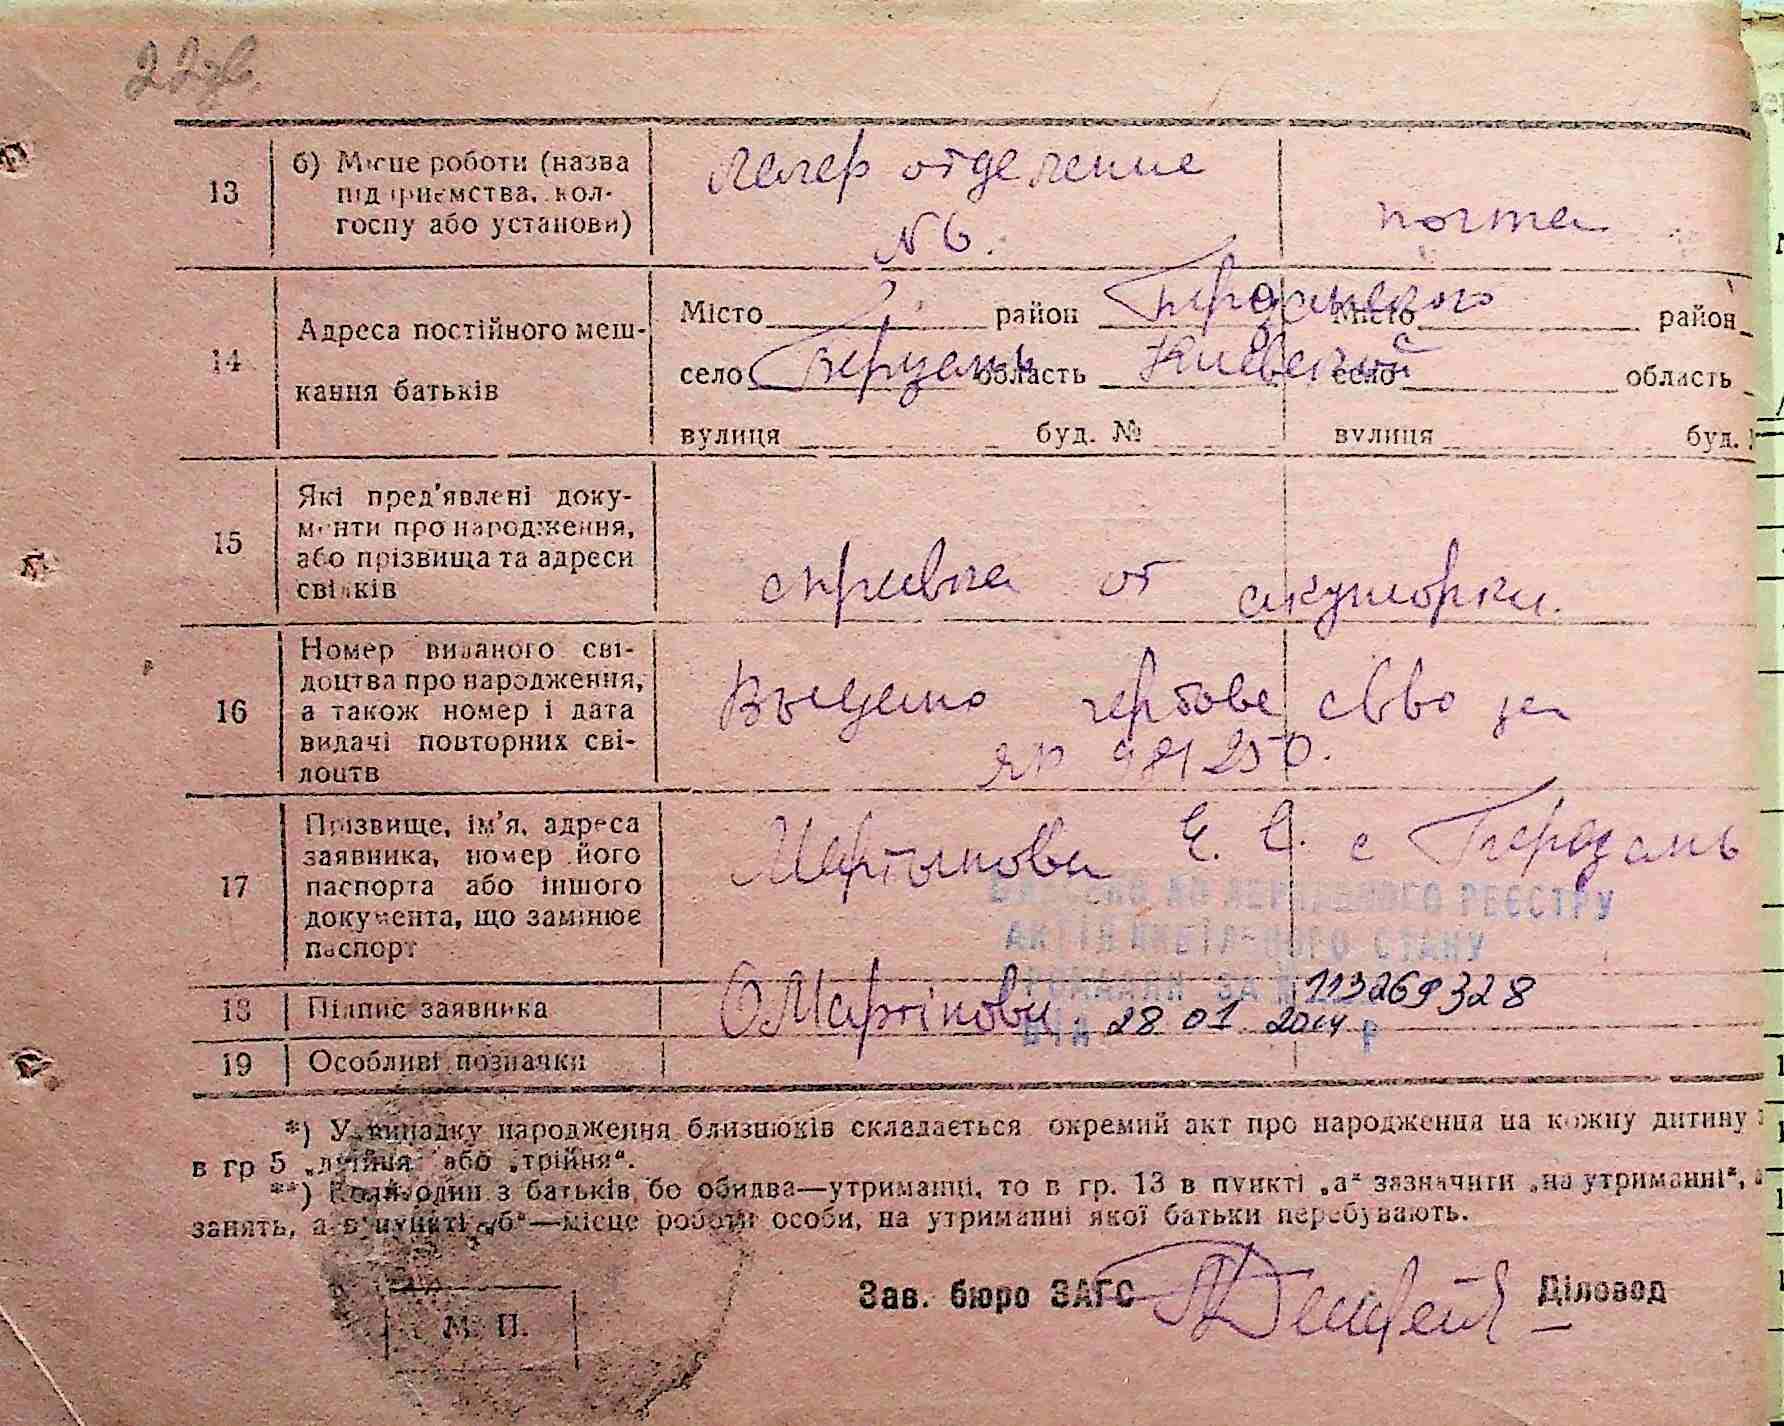 13
б) Місце роботи (назва
підприємства, кол-
госпу або установи)
лагер отделение
№ 6.
почта
14
Адреса постійного меш-
кання батьків
Місто район Місто район
село область Киевской село область
вулиця буд. № вулиця буд.
15
Які пред'явлені доку-
менти про народження,
або прізвища та адреси
свідків
справка от акушорки.
16
Номер виданого сві-
доцтва про народження,
а також номер і дата
видачі повторних сві-
доцтв
Выдано гербове св-во за
981250.
17
Прізвище, ім'я, адреса
заявника, номер його
паспорта або іншого
документа, що замінює
паспорт
Мартынова Е. С. с Березань
ВНЕСЕНО ДО ДЕРЖАВНОГО РЕЄСТРУ
АКТІВ ЦИВІЛЬНОГО СТАНУ
ГРОМАДЯН ЗА № 113269328
ВІД 28 01 2014 р
18
Підпис заявника
19
Особливі позначки
*) У випадку народження близнюків складається окремий акт про народження на кожну дитину
в гр 5 „двійня“ або „трійня“.
**) Коли один з батьків бо обидва—утриманці, то в гр. 13 в пункті „а“ зазначити „на утриманні“,
занять, а в пункті „б“—місце роботи особи, на утриманні якої батьки перебувають.
М. П.
Зав. бюро ЗАГС
Діловод